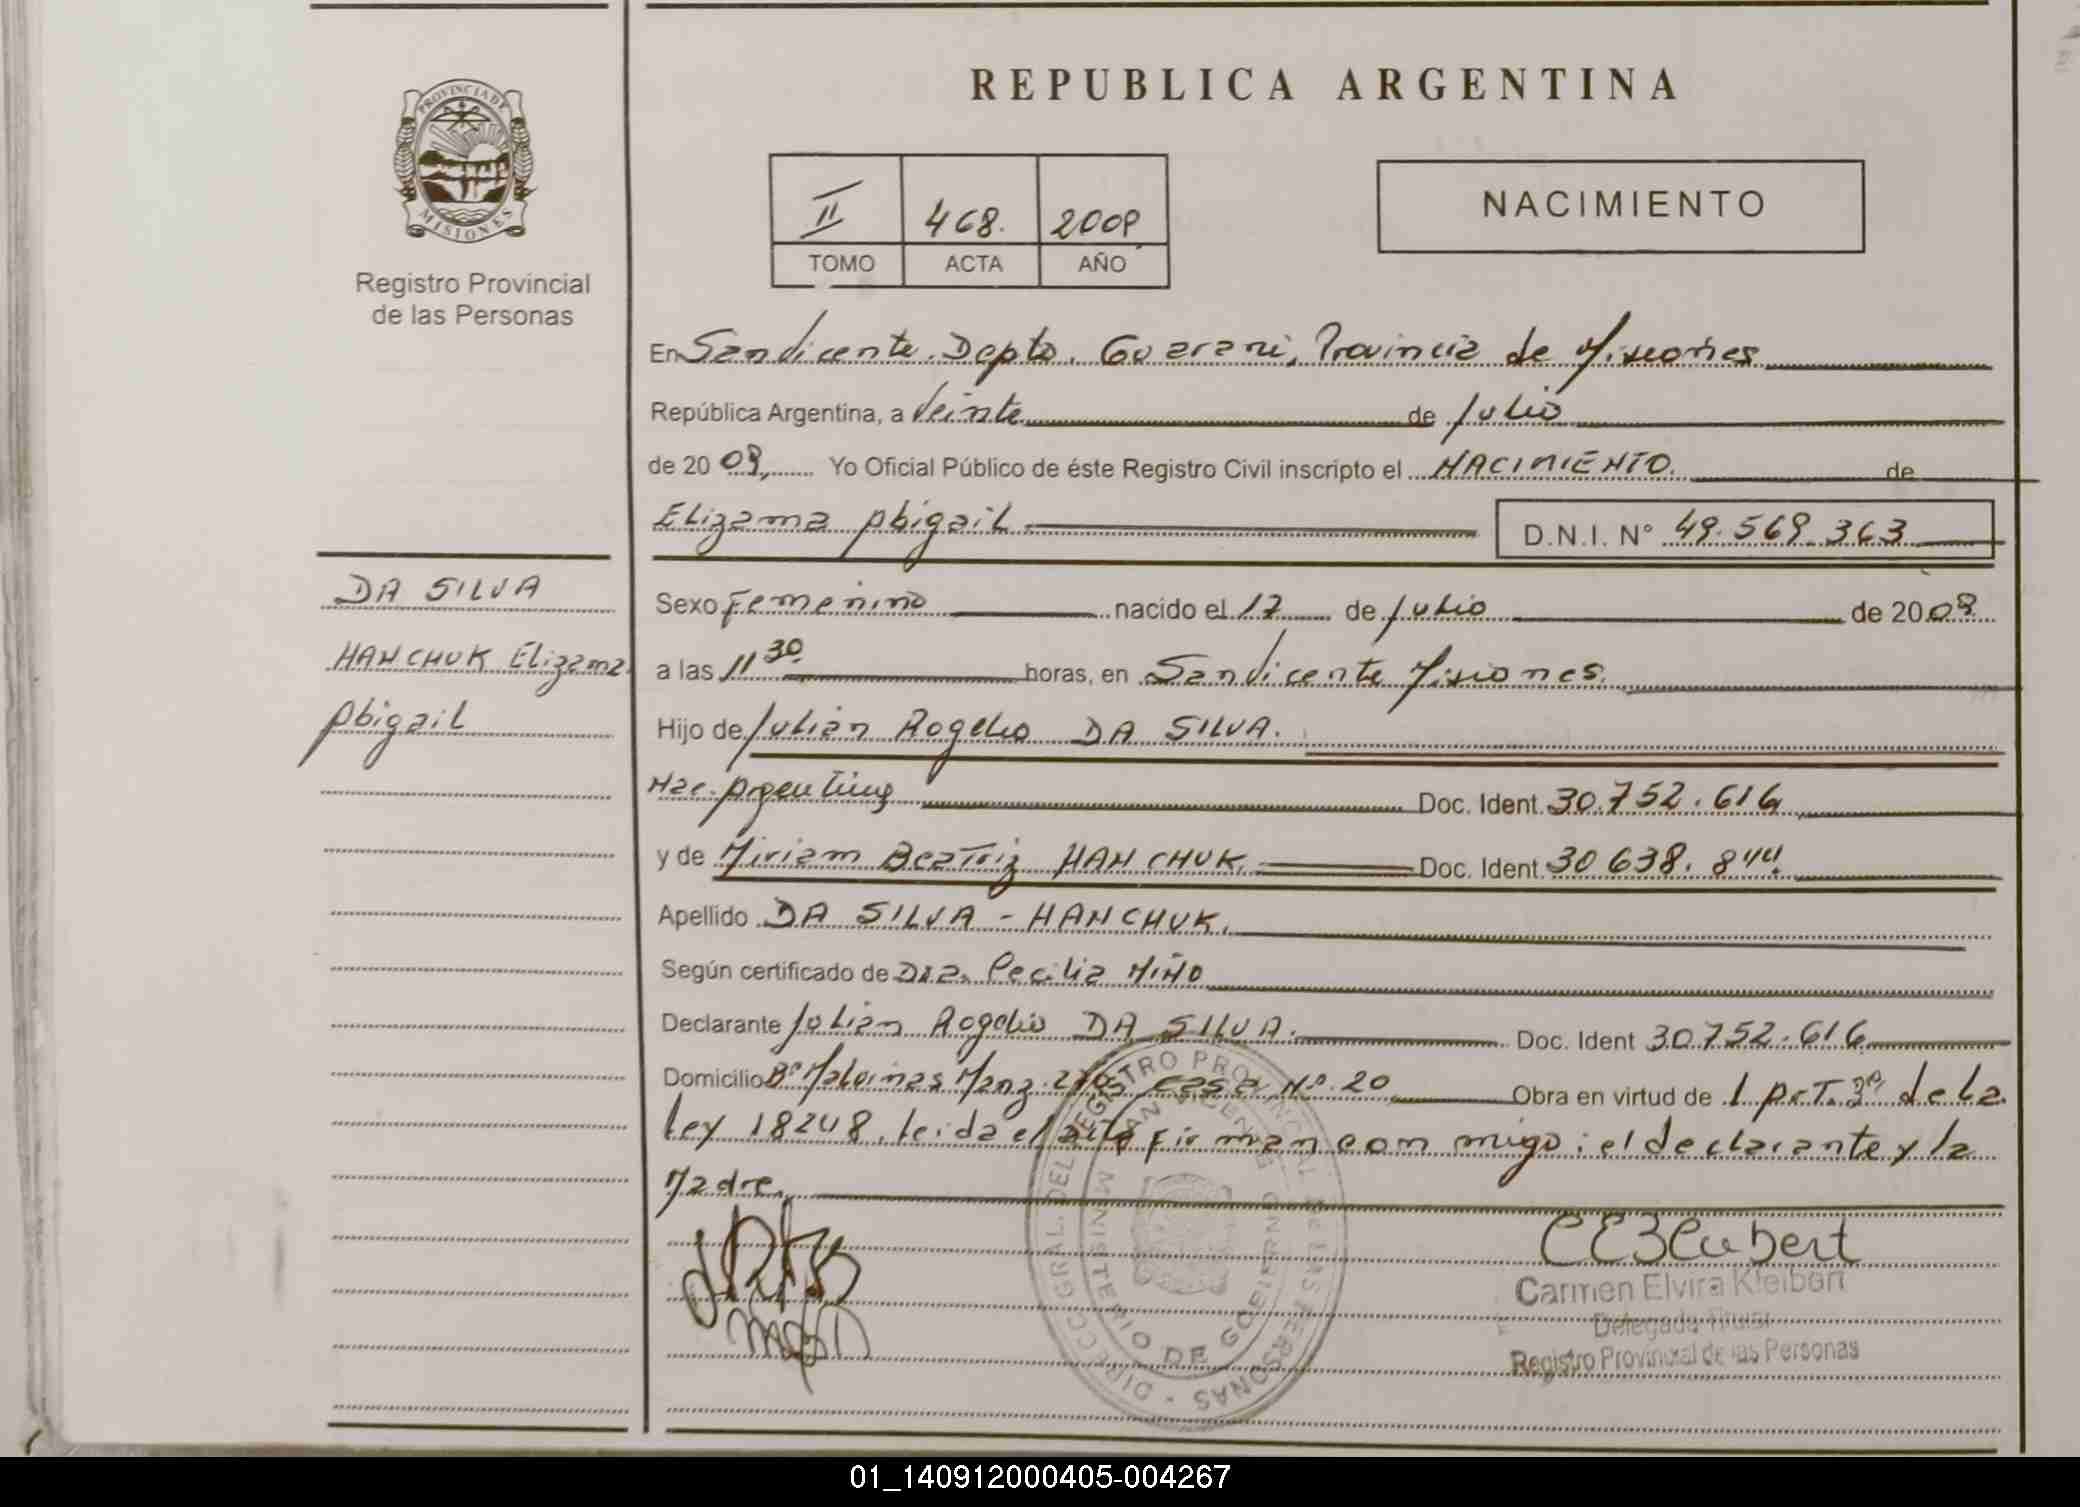 PROVINCIA DE
MISIONES
Registro Provincial
de las Personas
DA SILVA
HANCHUK Elizama
Abigail
REPUBLICA ARGENTINA
II 468. 2009
TOMO ACTA AÑO
NACIMIENTO
En San Vicente. Depto. Guarani, Provincia de Misiones
República Argentina, a Veinte de Julio
de 20 09, Yo Oficial Público de éste Registro Civil inscripto el NACIMIENTO. de
Elizama Abigail D.N.I. N° 49.569.363
Sexo Femenino nacido el 17 de Julio de 20 09
a las 11 30. horas, en San Vicente Misiones.
Hijo de Julian Rogelio DA SILVA.
Nac. Argentina Doc. Ident. 30.752.616
y de Miriam Beatriz HANCHUK. Doc. Ident. 30 638. 844.
Apellido DA SILVA - HANCHUK.
Según certificado de Dra. Cecilia MIÑO
Declarante Julian Rogelio DA SILVA. Doc. Ident 30752.616
Domicilio B° Malvinas Manz. Casa N°. 20 Obra en virtud de l Art. 3° de la
Ley 18248. leida el acta firman con migo: el declarante y la
Madre.
DIRECC. GRAL. DEL REGISTRO PROVINCIAL DE LAS PERSONAS
SAN VICENTE
MINISTERIO DE GOBIERNO
Carmen Elvira Kleibert
Delegada Titular
Registro Provincial de las Personas
01_140912000405-004267